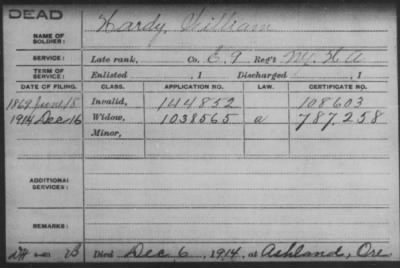 DEAD
NAME OF SOLDIER: Hardy, William
SERVICE: Late rank, Co. E. 9 Reg't N.Y. H A
TERM OF SERVICE: Enlisted , 1 Discharged , 1
DATE OF FILING. CLASS. APPLICATION NO. LAW. CERTIFICATE NO.
1869 June 18 Invalid, 144852 108603
1914 Dec 16 Widow, 1038565 a 787.258
Minor,
ADDITIONAL SERVICES:
REMARKS:
Died Dec 6, 1914, at Ashland, Ore